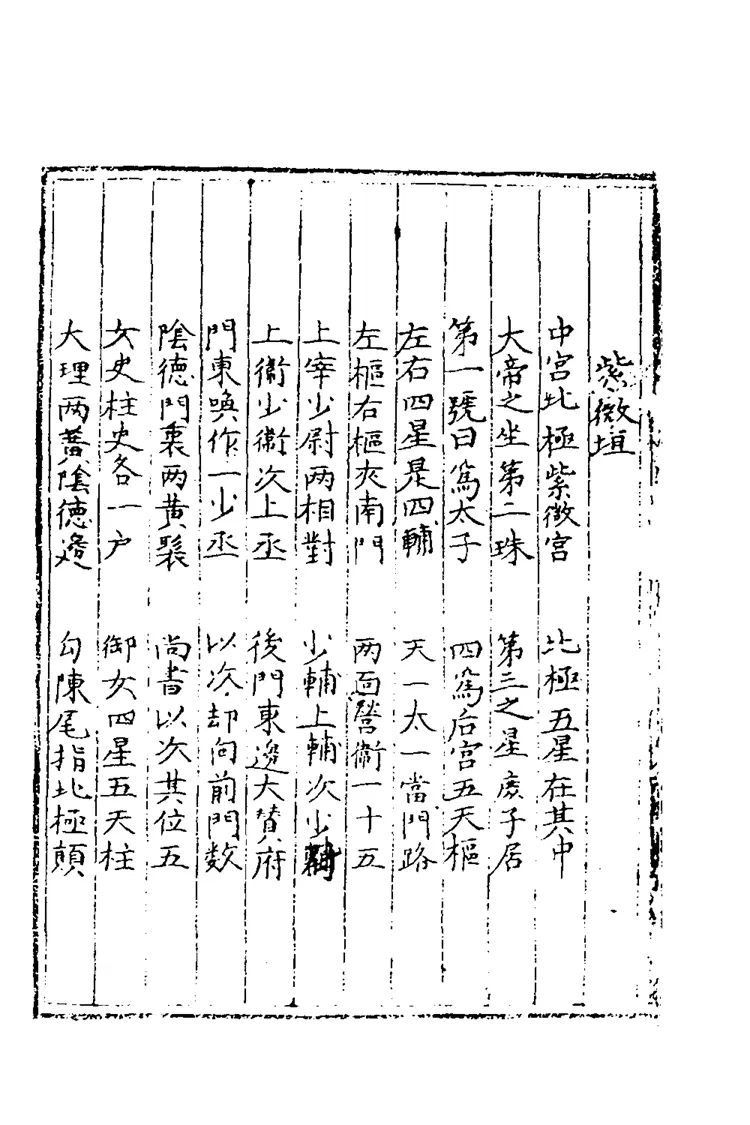 紫微垣
中宮北極紫微宮 北極五星在其中
大帝之坐第二珠 第三之星庶子居
第一號曰爲太子 四爲后宮五天樞
左右四星是四輔 天一太一當門路
左樞右樞夾南門 两面營衞一十五
上宰少尉两相對 少輔上輔次少
上衞少衞次上丞 後門東邊大賛府
門東喚作一少丞 以次却向前門数
陰德門裏两黄聚 尚書以次其位五
女史柱史各一户 御女四星五天柱
大理两黄陰德邊 勾陳尾指北極顛